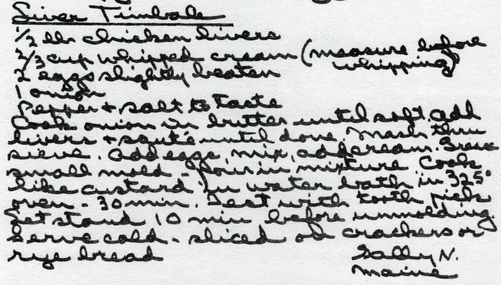 Liver Timbale
1/2 lb chicken livers
2/3 cup whipped cream (measure before
whipping)
2 eggs slightly beaten
1 onion
Pepper + salt to taste
Cook onion in butter until soft, add
livers + sauté until done. Mash thru
sieve. Add eggs, mix, add cream. Grease
small mold - pour in mixture. Cook
like custard in water bath in 325°
oven - 30 min. Test with tooth pick
Let stand 10 min before unmolding
Serve cold - sliced on crackers or
rye bread
Sally N.
Maine